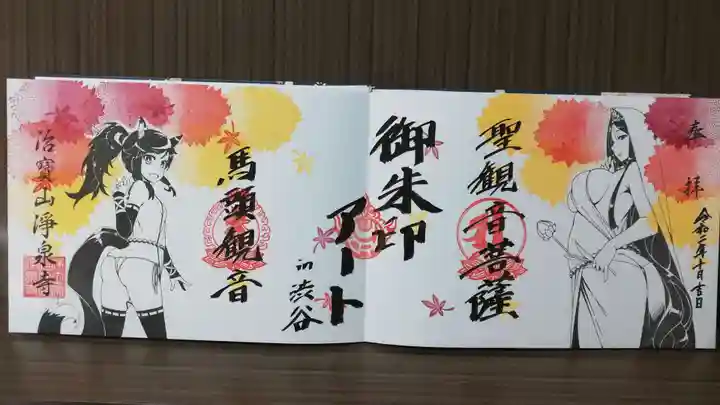 奉拝
令和二年十月吉日
聖観音菩薩
御朱印
アート
in 渋谷
馬頭観音
治寶山淨泉寺